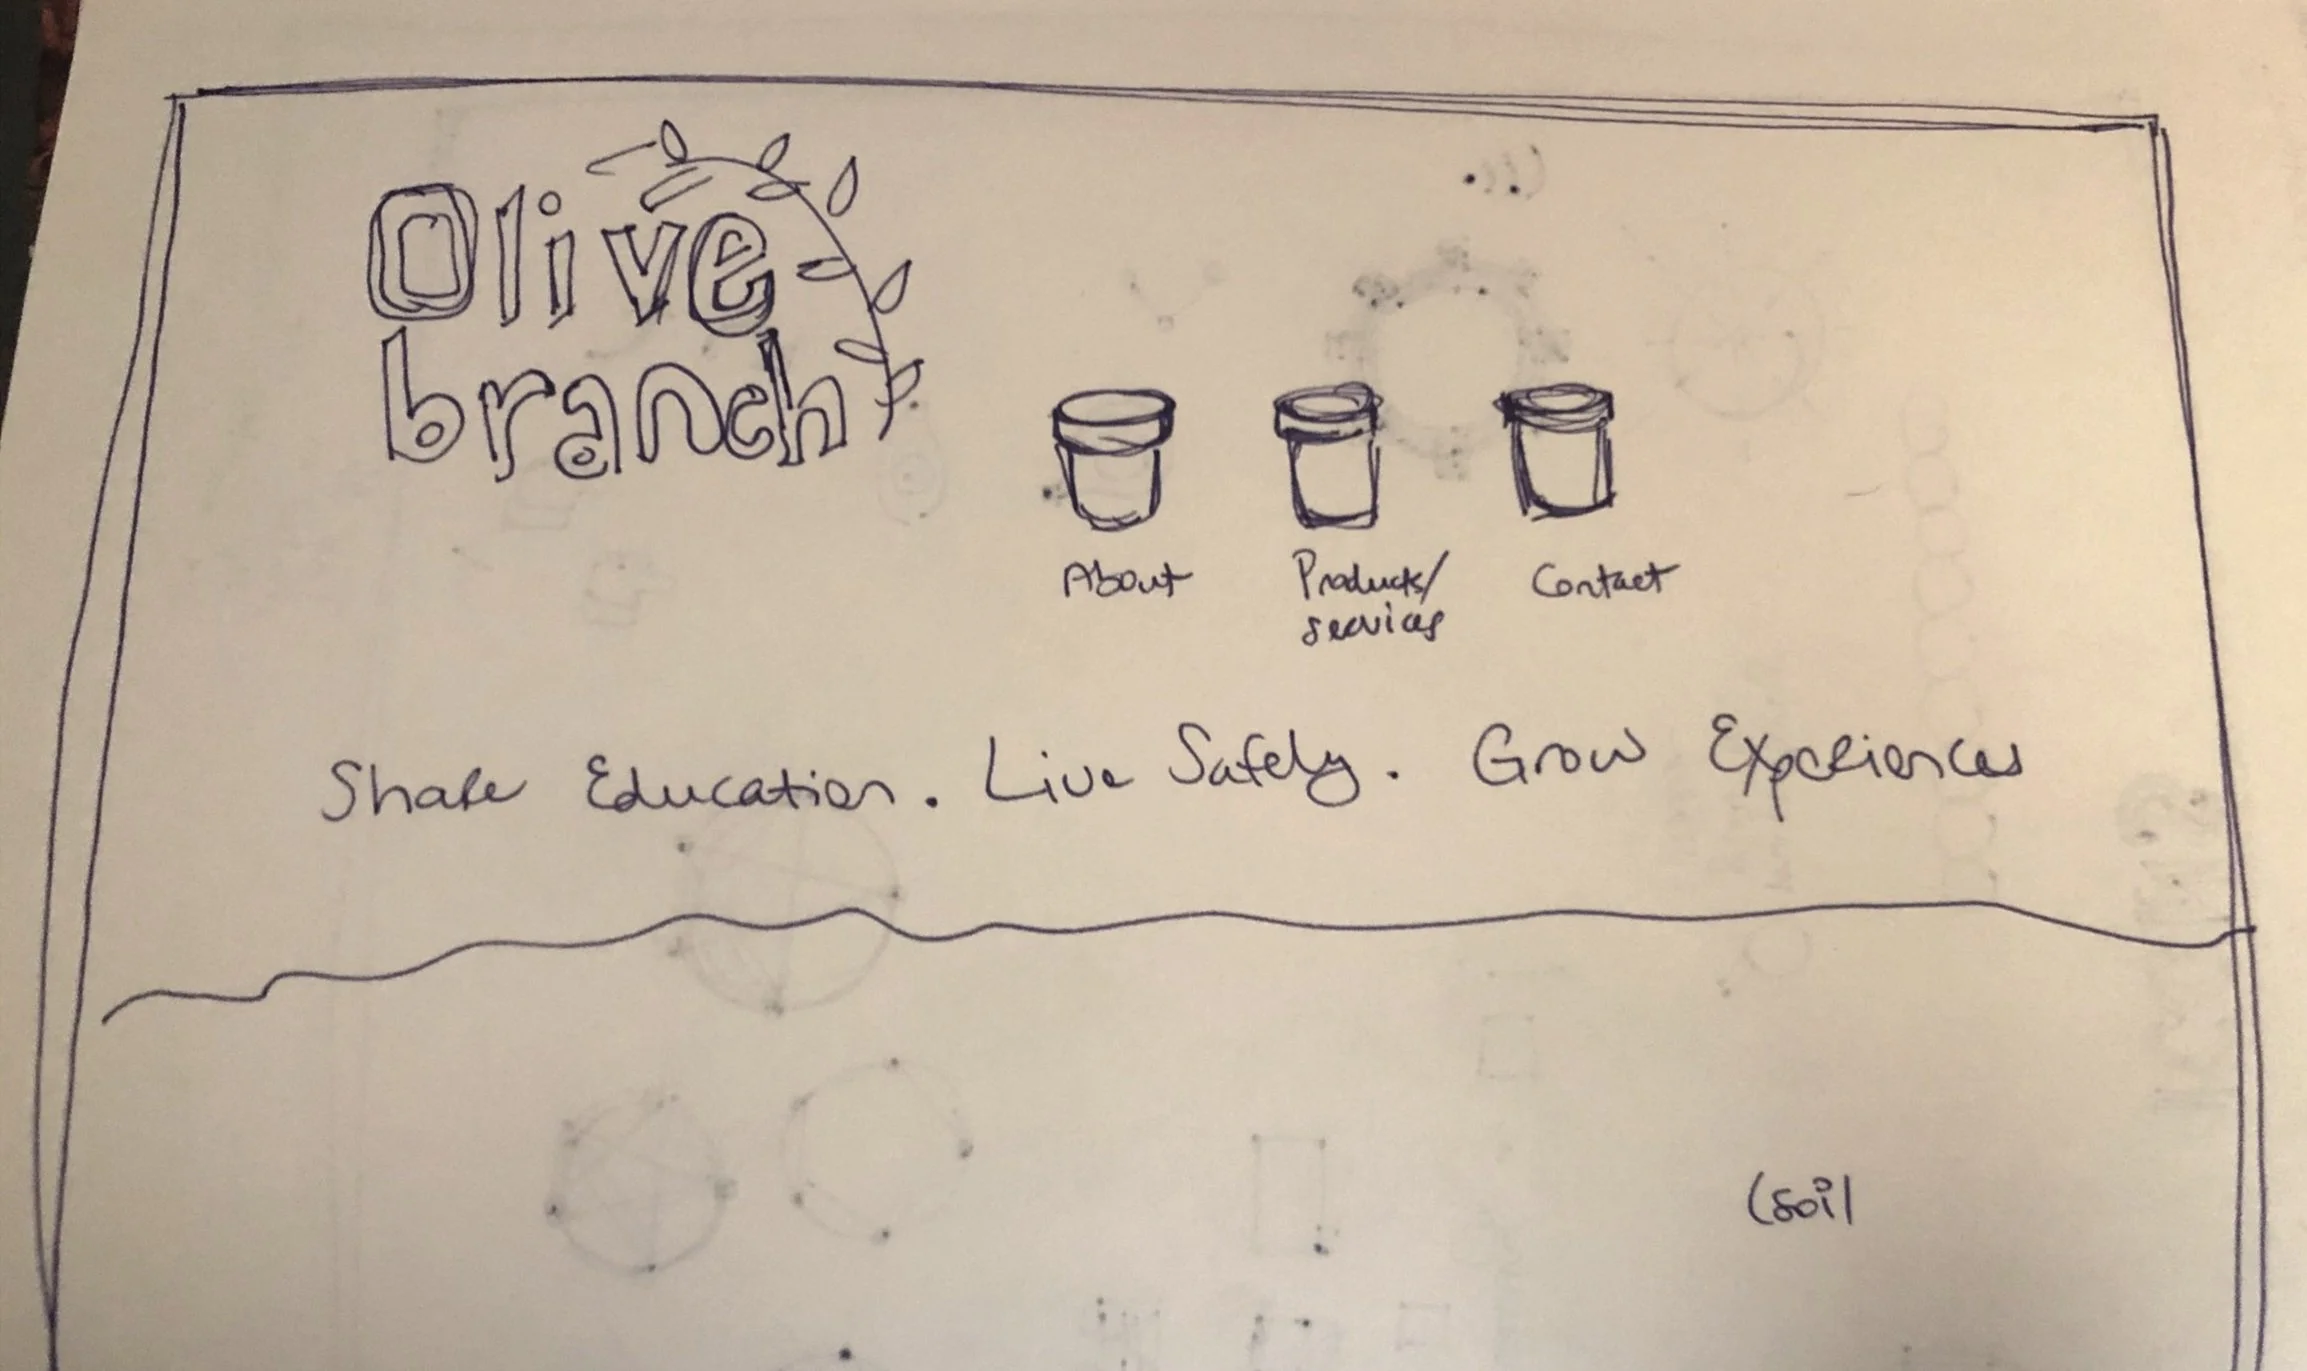 Olive
branch
About
Products/
services
Contact
Share Education. Live Safely. Grow Experiences
(soil